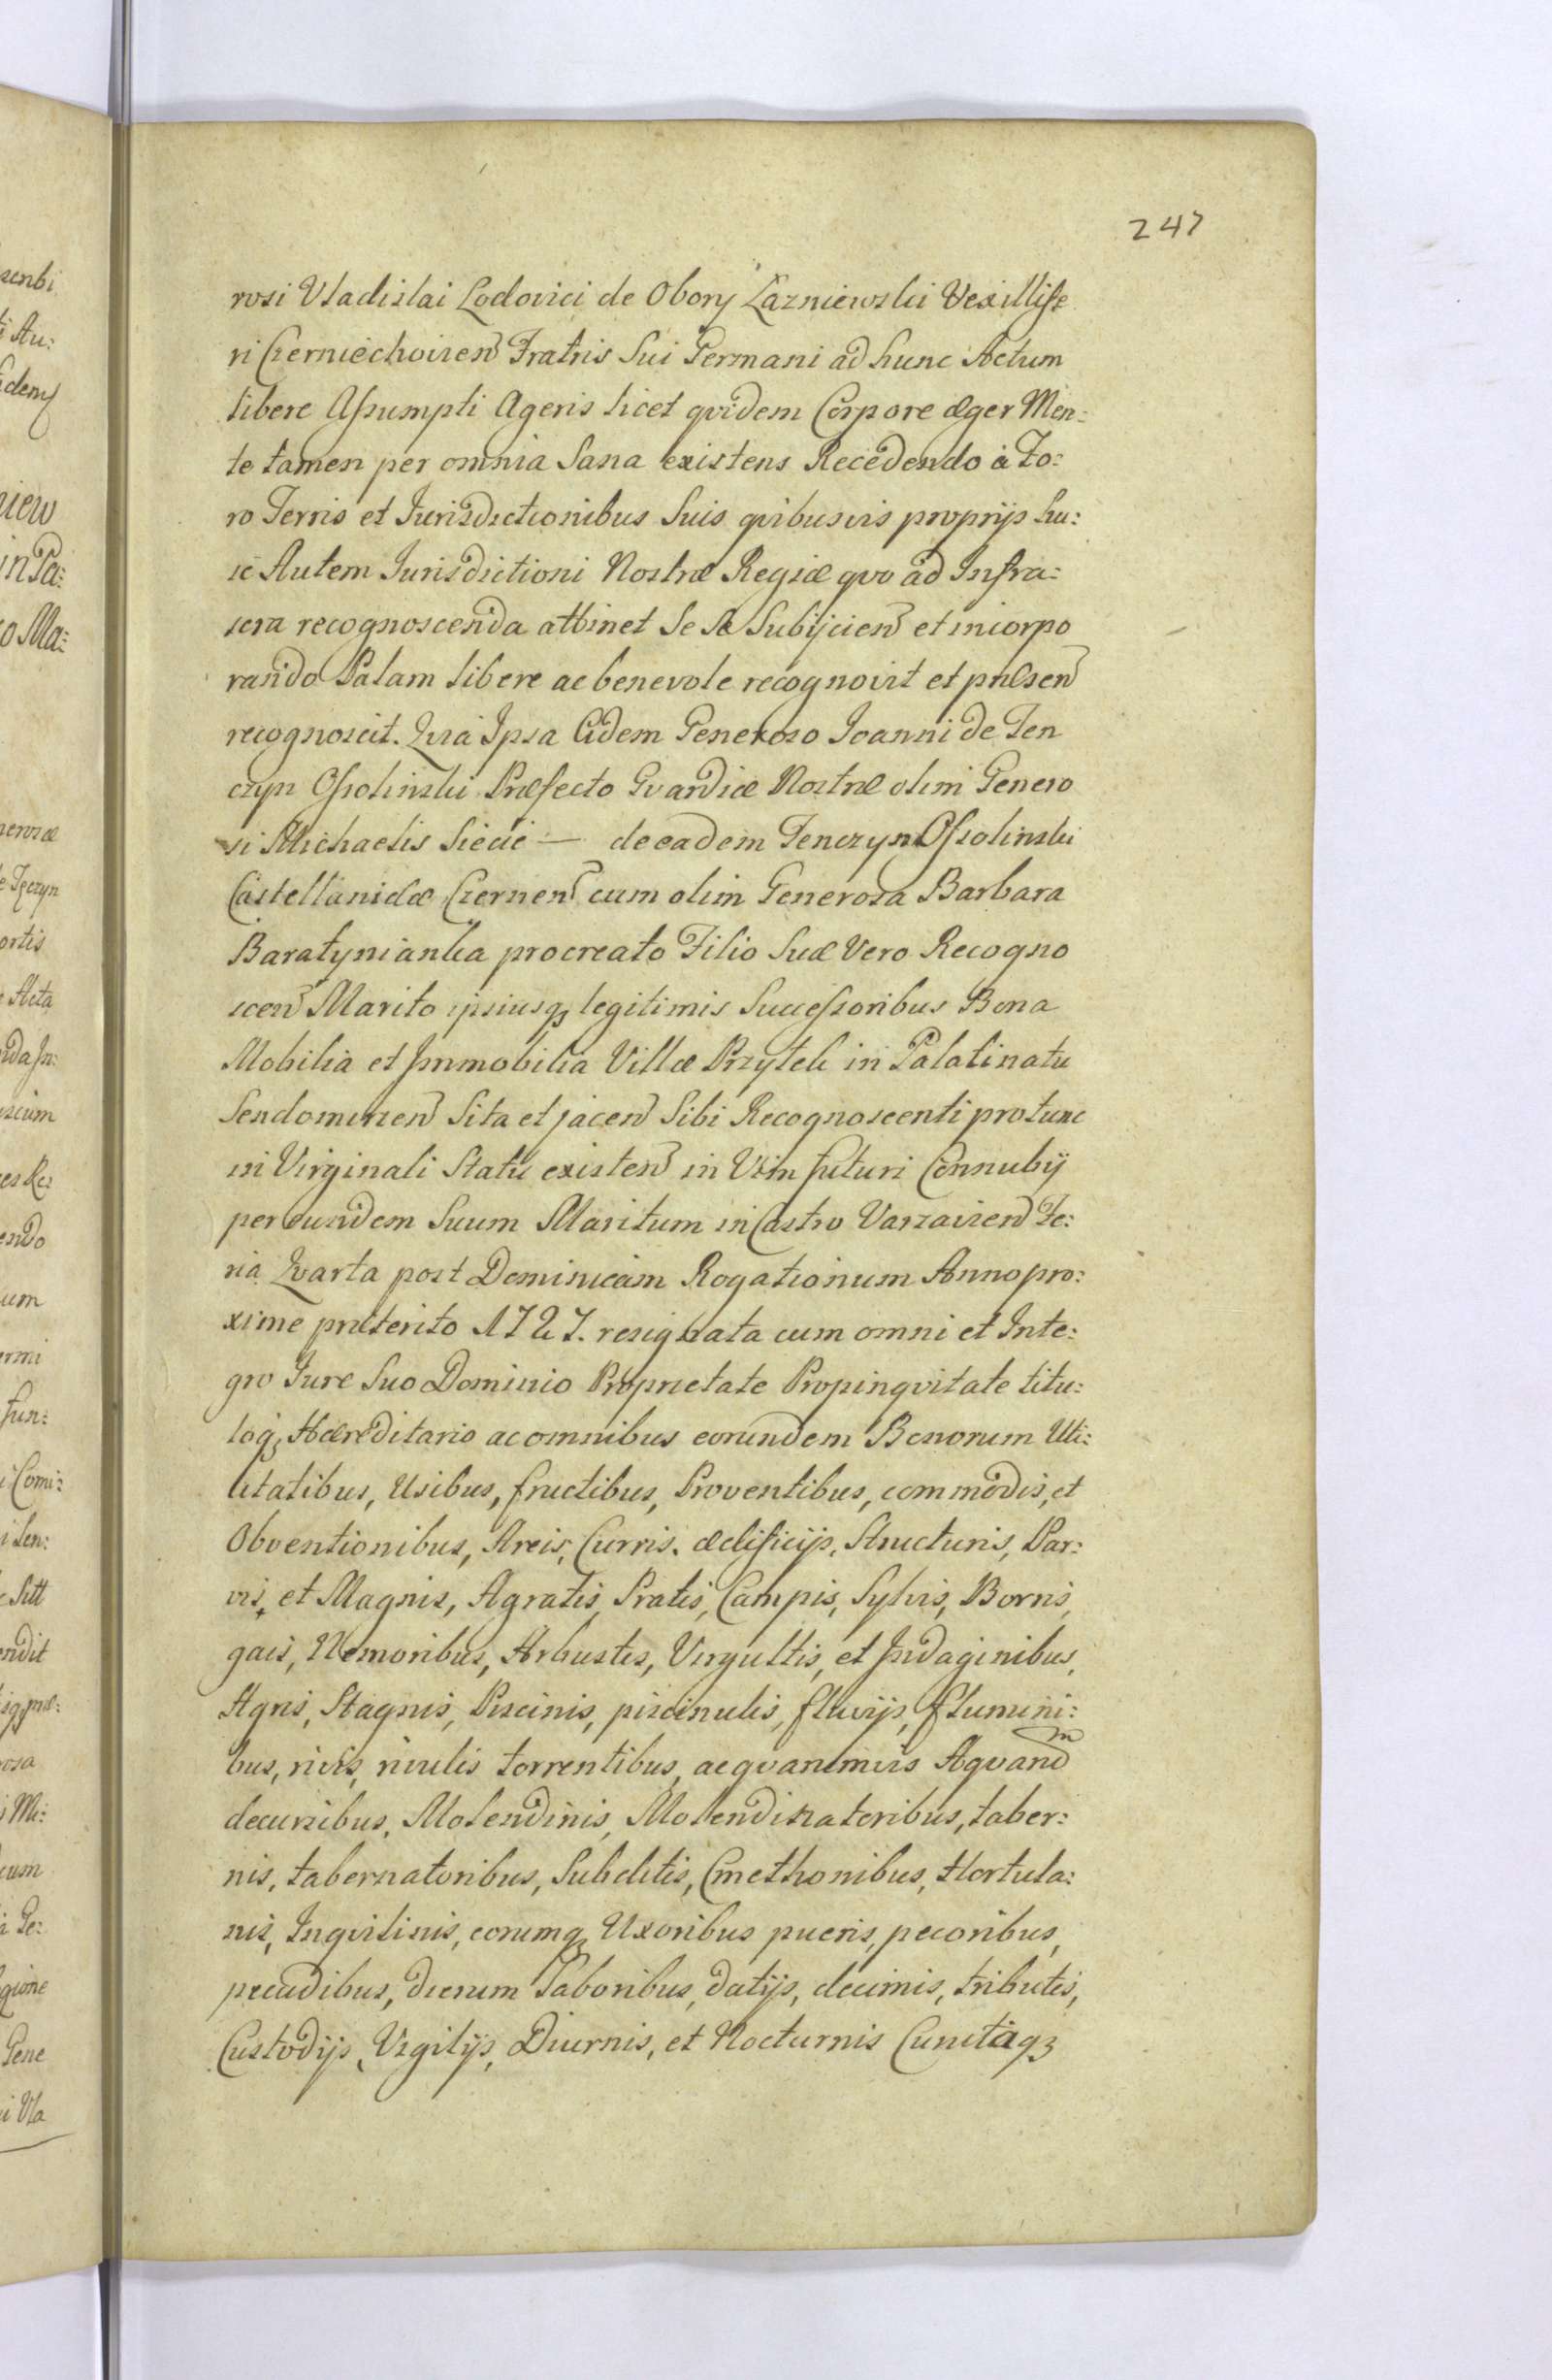 247
rosi Vladislai Lodovici de Obory Łazniewski Vexillife
ri Czerniechovien Fratris Sui Germani ad hunc Actum
libere Assumpti Ageris licet qvidem Corpore æger Men:
te tamen per omnia Sana existens Recedendo à Fo:
ro Terris et Jurisdictionibus Suis qvibusvis proprijs hu:
ic Autem Jurisdictioni Nostræ Regiæ qvo ad Infra:
scra recognoscenda attinet Se Se Subijcien et incorpo
rando Palam libere ac benevole recognovit et præsen
recognoscit. Qvia Ipsa Eidem Generoso Joanni de Ten
czyn Ossolinski Præfecto Gvardiæ Nostræ olim Genero
si Michaelis Siecie — de eadem Tenczyn Ossolinski
Castellanidæ Czernen cum olim Generosa Barbara
Baratynianka procreato Filio Suæ Vero Recogno
scen Marito ipsiusq legitimis Successoribus Bona
Mobilia et Immobilia Villæ Przytek in Palatinatu
Sendomirien Sita et jacen Sibi Recognoscenti protunc
in Virginali Statu existen in Vim futuri Connubij
per eundem Suum Maritum in Castro Varsavien Fe:
ria Qvarta post Dominicam Rogationum Anno pro:
xime præterito 1727. resignata cum omni et Inte:
gro Jure Suo Dominio Proprietate Propinqvitate titu:
loq, Hæreditario ac omnibus eorundem Bonorum Uti:
litatibus, Usibus, fructibus, Proventibus, commodis, et
Obventionibus, Areis, Curris, ædificijs, Structuris, Par:
vis, et Magnis, Agratis, Pratis, Campis, Sylvis, Borris,
gais, Nemoribus, Arbustis, Virgultis, et Indaginibus,
Agris, Stagnis, Piscinis, piscinulis, fluvijs, flumini:
bus, rivis, rivulis torrentibus, ac qvarumvis Aqvarum
decursibus, Molendinis, Molendinatoribus, taber:
nis, tabernatoribus, Subditis, Cmethonibus, Hortula:
nis, Inqvilinis, eorumq Uxoribus pueris, pecoribus,
pecudibus, dierum Laboribus, datijs, decimis, tributis,
Custodijs, Vigilijs, Diurnis, et Nocturnis Cunctisq